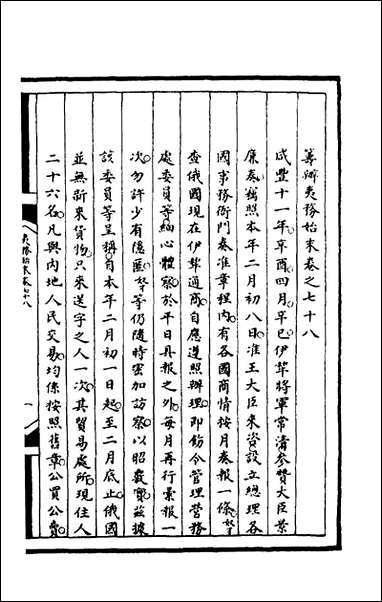 籌辦夷務始末卷之七十八
咸豐十一年辛酉四月辛巳伊犂將軍常清參贊大臣景
廉奏竊照本年二月初八日准王大臣來咨設立總理各
國事務衙門奏准章程內有各國商情按月奏報一條奴等
查俄國現在伊犂通商自應遵照辦理即飭令管理營務
處委員等細心體察於平日具報之外每月再行彙報一
次勿許少有隱匿奴等仍隨時密加訪察以昭覈實茲據
該委員等呈稱自本年二月初一日起至二月底止俄國
並無新來貨物只來送字之人一次其貿易處所現住人
二十六名凡與內地人民交易均係按照舊章公買公賣
夷務始末卷七十八
一